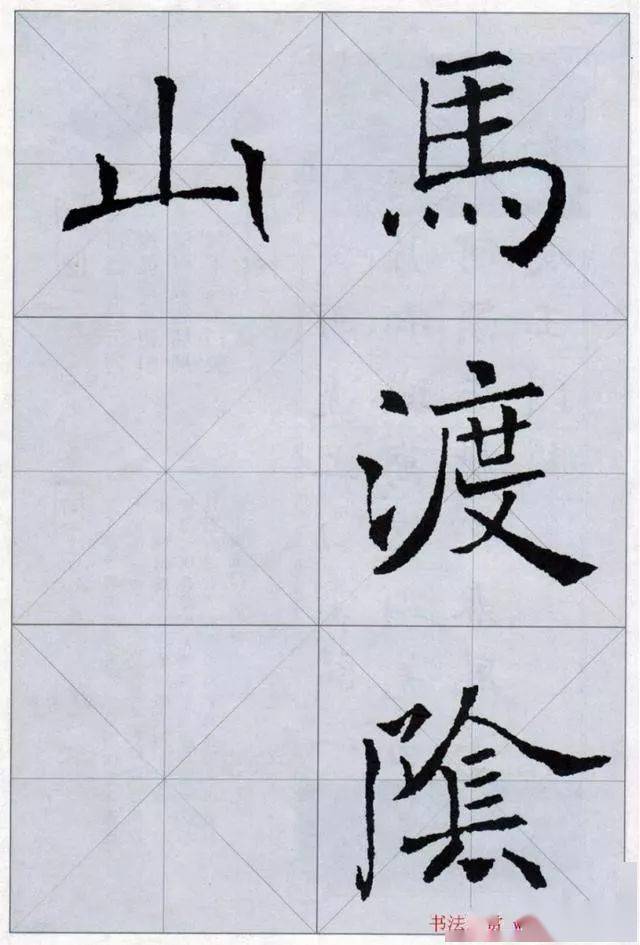 馬渡陰
山
书法